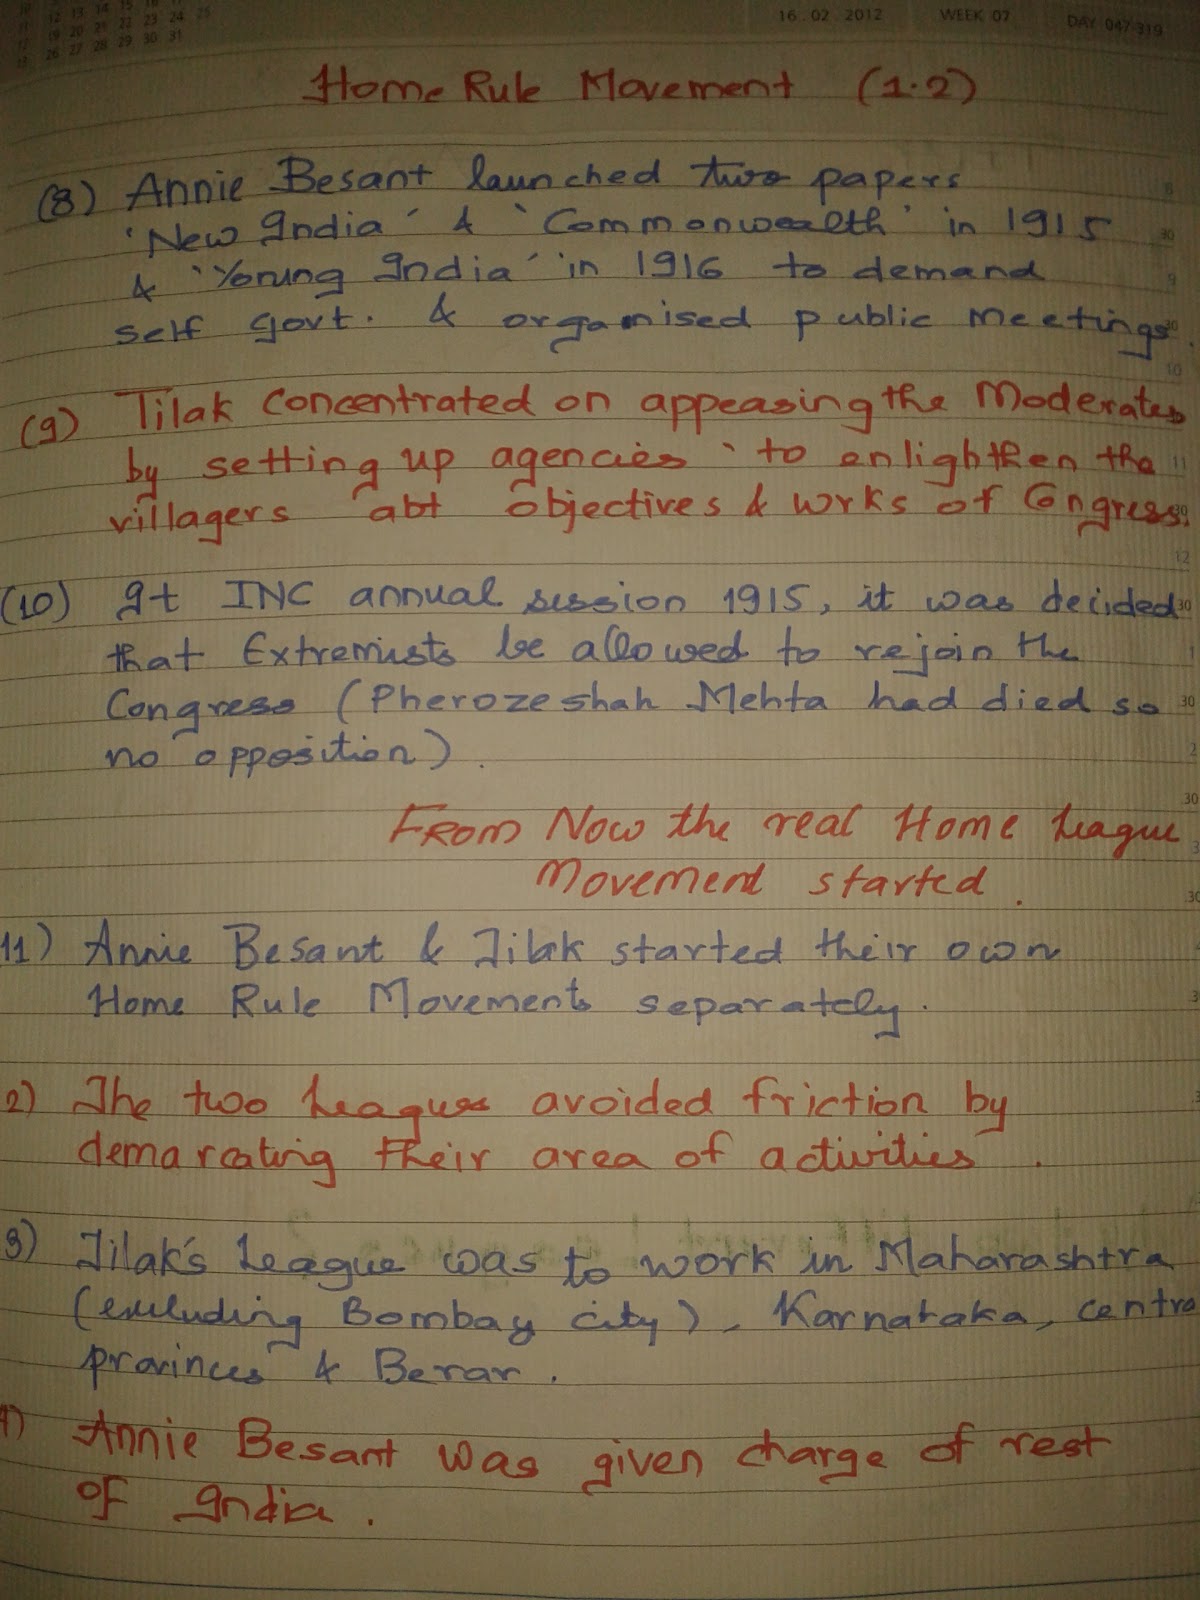 12 13 14 15 16 17
12 19 20 21 22 23 24 25
13 26 27 28 29 30 31
16.02.2012 WEEK 07 DAY 047-319
Home Rule Movement (1.2)
(8) Annie Besant launched two papers
'New India' & 'Commonwealth' in 1915
& 'Yorung India' in 1916 to demand
self govt. & organised public meetings.
(9) Tilak concentrated on appeasing the Moderates
by setting up agencies to enlighten the
villagers abt objectives & wrks of Congress.
(10) It INC annual session 1915, it was decided
that Extremists be allowed to rejoin the
Congress (Pherozeshah Mehta had died so
no opposition).
From Now the real Home League
Movement started.
11) Annie Besant & Tilak started their own
Home Rule Movements separately.
2) The two Leagues avoided friction by
demarcating their area of activities.
3) Tilak's League was to work in Maharashtra
(excluding Bombay city), Karnataka, centra
provinces & Berar.
Annie Besant was given charge of rest
of India.
8
30
9
30
10
11
30
12
30
1
30
2
30
3
30